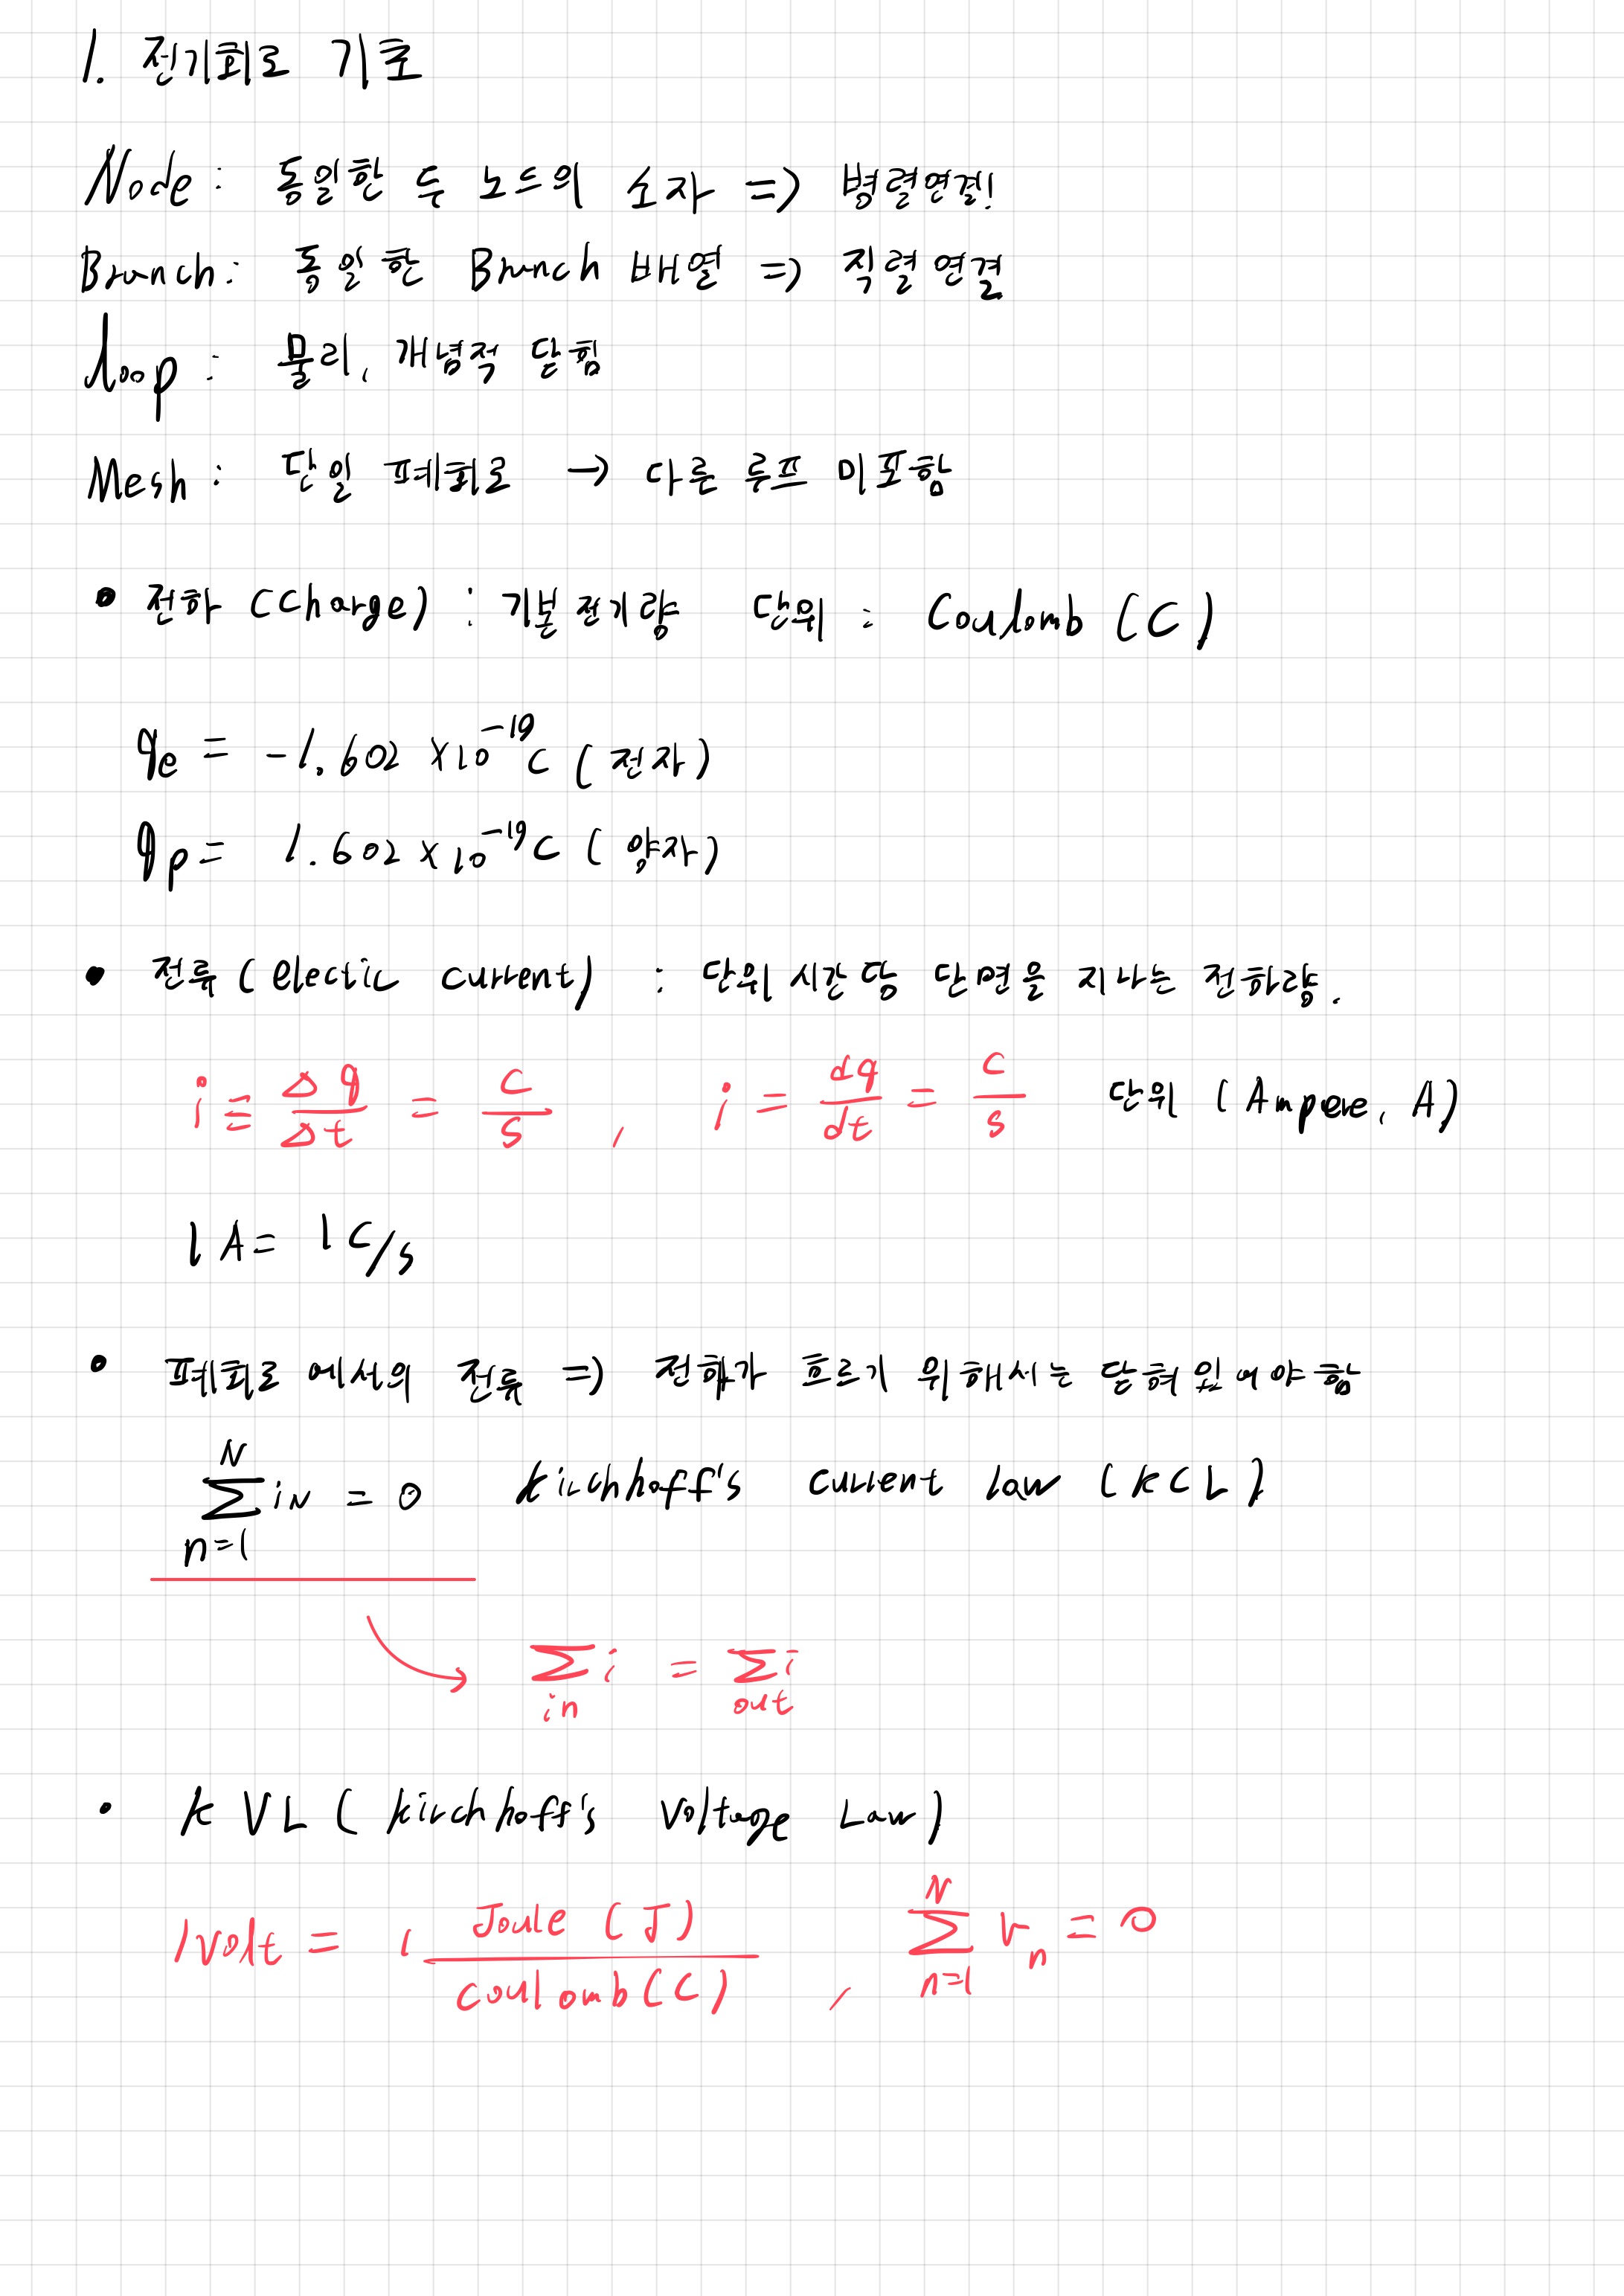 1. 전기회로 기초
Node : 동일한 두 노드의 소자 => 병렬연결!
Branch : 동일한 Branch 배열 => 직렬 연결
loop : 물리, 개념적 닫힘
Mesh : 단일 폐회로 → 다른 루프 미포함
• 전하 (Charge) : 기본 전기량 단위 : Coulomb (C)
qe = -1.602 ×10⁻¹⁹ C (전자)
qp = 1.602 ×10⁻¹⁹ C (양자)
• 전류 (electic current) : 단위 시간 당 단면을 지나는 전하량.
i ≡ Δq/Δt = C/s , i = dq/dt = C/s 단위 (Ampere, A)
1 A = 1 C/s
• 폐회로 에서의 전류 => 전하가 흐르기 위해서는 닫혀 있어야 함
∑_{n=1}^{N} i_N = 0 kirchhoff's current law (KCL)
∑_{in} i = ∑_{out} i
• KVL (kirchhoff's Voltage Law)
1volt = 1 Joule (J)/coulomb (C) , ∑_{n=1}^{N} v_n = 0